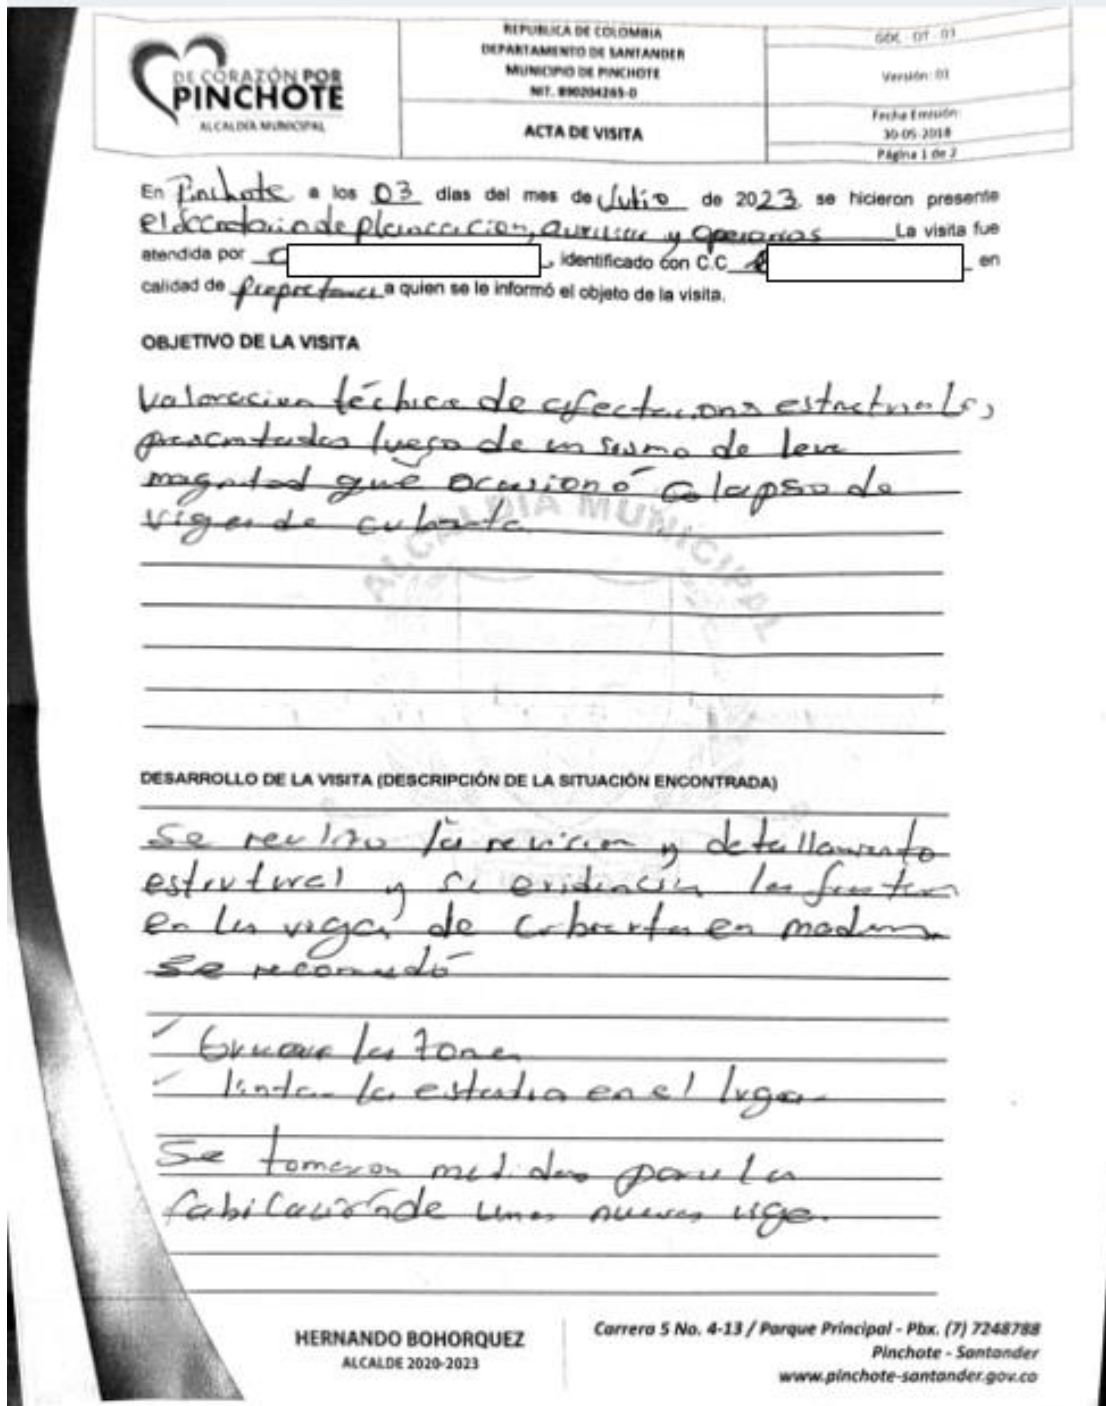 DE CORAZÓN POR
PINCHOTE
ALCALDÍA MUNICIPAL
REPUBLICA DE COLOMBIA
DEPARTAMENTO DE SANTANDER
MUNICIPIO DE PINCHOTE
NIT. 890204265-0
ACTA DE VISITA
Versión: 01
Fecha Emisión:
30-05-2018
Página 1 de 2
En Pinchote a los 03 días del mes de Julio de 2023 se hicieron presente
el Secretario de planeación, auxiliar y operarios La visita fue
atendida por , identificado con C.C en
calidad de propietario a quien se le informó el objeto de la visita.
OBJETIVO DE LA VISITA
Valoracion técnica de afectaciones estructurales,
presentadas luego de un sismo de leve
magnitud que ocasionó colapso de
vigas de cubierta
ALCALDIA MUNICIPAL
DESARROLLO DE LA VISITA (DESCRIPCIÓN DE LA SITUACIÓN ENCONTRADA)
Se realizo la revision y detallamiento
estrutural y se evidencia la
en las vigas de cubierta en madera
se recomendó
la zona
la estadia en el lugar
Se tomaron medidas para la
fabricación de unas nuevas viga.
HERNANDO BOHORQUEZ
ALCALDE 2020-2023
Carrera 5 No. 4-13 / Parque Principal - Pbx. (7) 7248788
Pinchote - Santander
www.pinchote-santander.gov.co